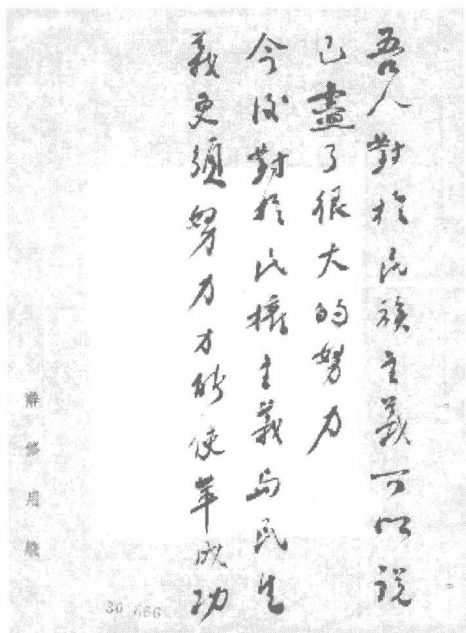 吾人對於民族主義可以說
已盡了很大的努力
今後對於民權主義与民生
義更須努力才能使革成功
辭修用